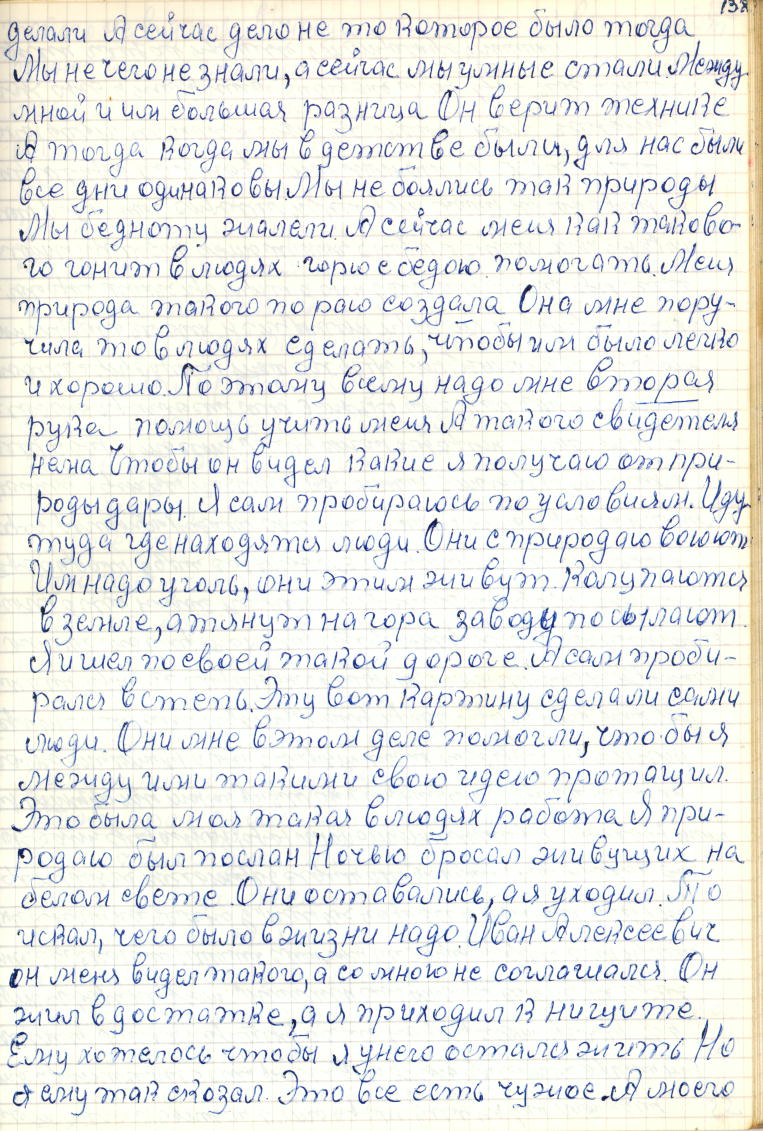 138
делали А сейчас дело не то которое было тогда
Мы не чего не знали, а сейчас мы умные стали Между
мной и им большая разница Он верит технике
А тогда когда мы в детстве были, для нас были
все дни одинаковы Мы не боялись так природы
Мы бедноту жалели. А сейчас меня как таково-
го гонит в людях горю с бедою помогать. Меня
природа такого по раю создала Она мне пору-
чила то в людях сделать, чтобы им было легко
и хорошо. По этому всему надо мне вторая
рука помощь учить меня А такого свидетеля
нема Чтобы он видел какие я получаю от при-
роды дары. Я сам пробираюсь по условиям. Иду
туда где находятся люди. Они с природаю воюют
Им надо уголь, они этим живут. Колупаются
в земле, а тянут на гора заводу посылают.
Я и шел по своей такой дороге. А сам проби-
рался в степь. Эту вот картину сделали сами
люди. Они мне в этом деле помогли, что бы я
между ими такими свою идею протащил.
Это была моя такая в людях работа Я при-
родаю был послан Ночью бросал живущих на
белом свете. Они оставались, а я уходил. То
искал, чего было в жизни надо. Иван Алексеевич
он меня видел такого, а со мною не соглашался. Он
жил в достатке, а я приходил к нищите.
Ему хотелось чтобы я унего остался жить Но
я ему так сказал. Это все есть чужое. А моего